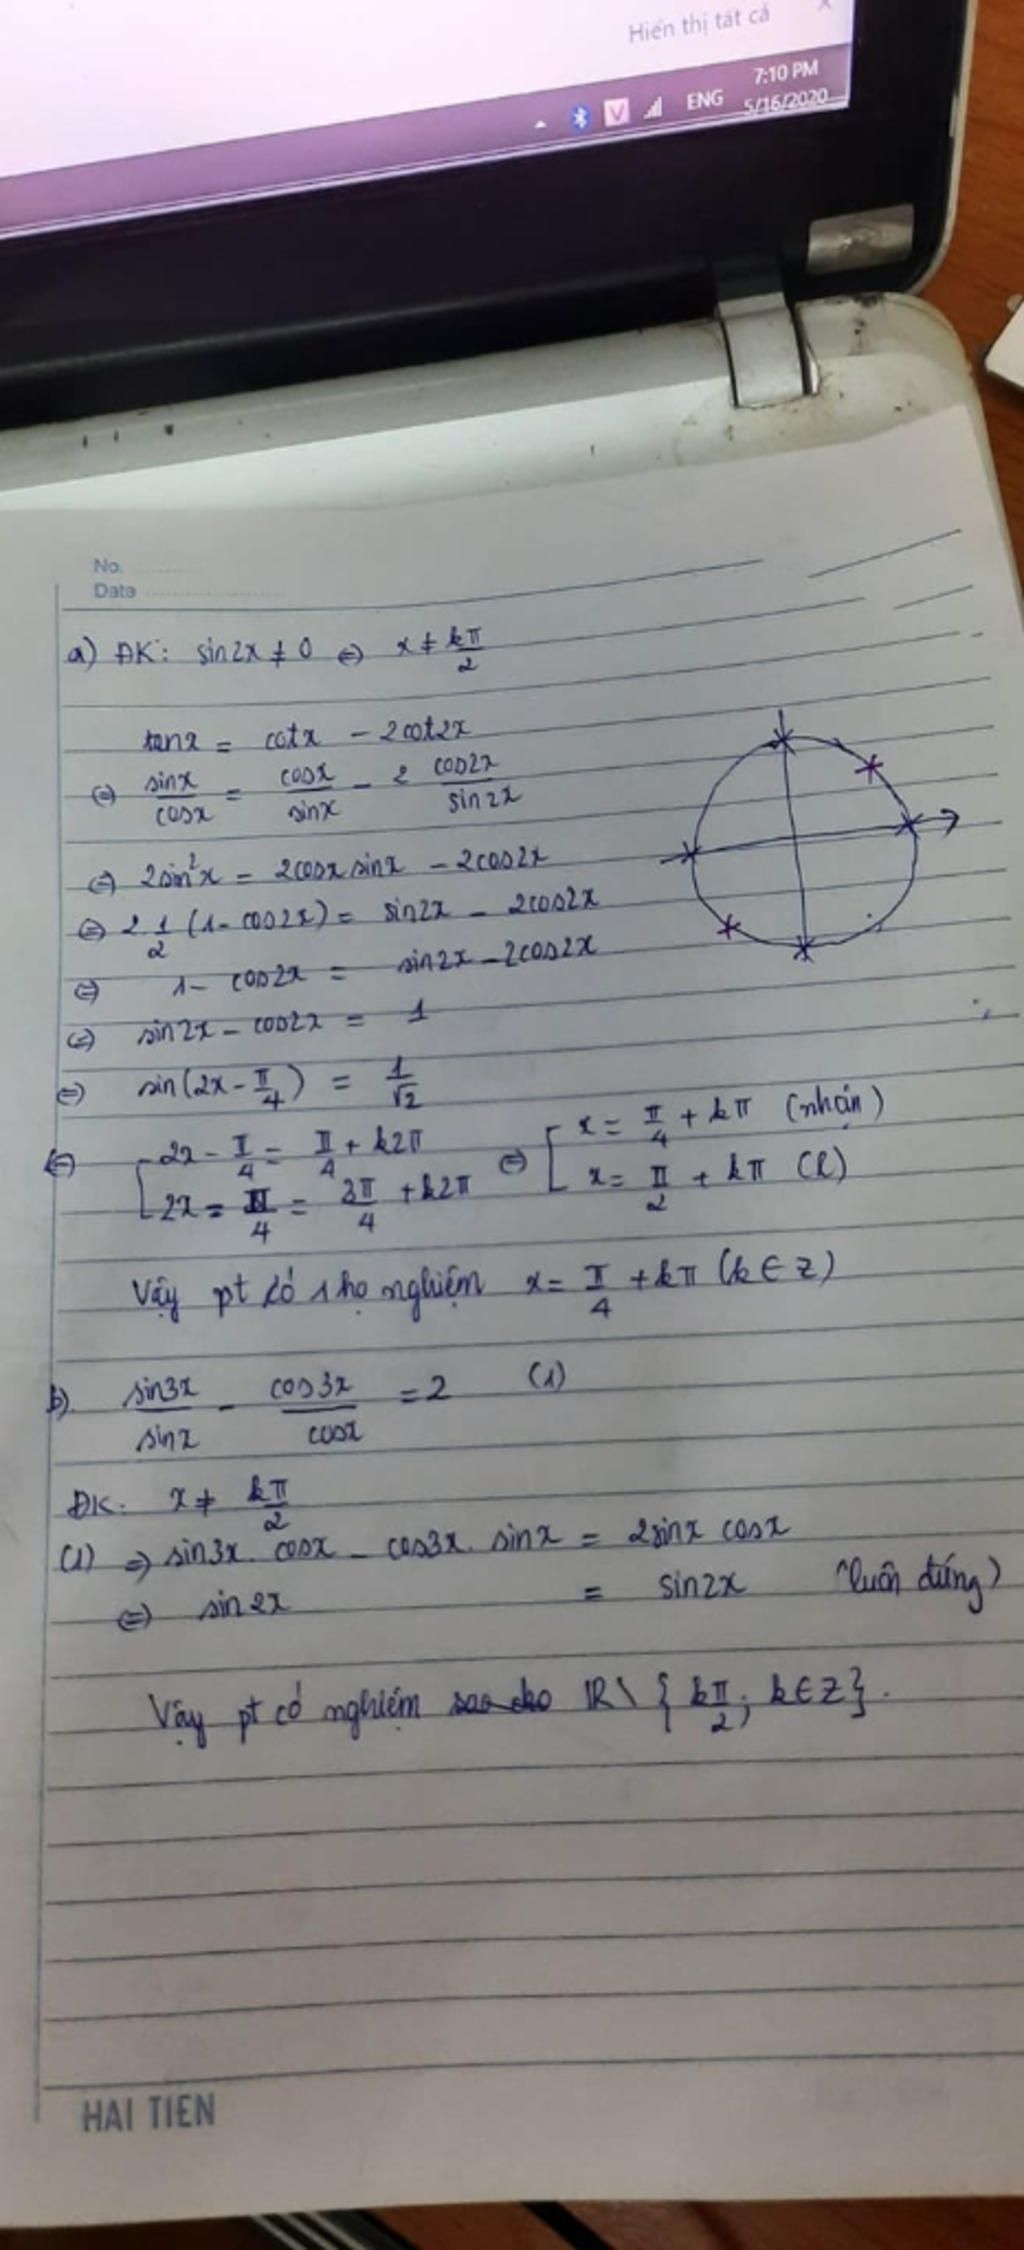 Hiển thị tất cả
7:10 PM
ENG 5/16/2020
No. ............
Date ........................
a) ĐK: sin2x ≠ 0 ⇔ x ≠ kπ/2
tanx = cotx - 2cot2x
⇔ sinx/cosx = cosx/sinx - 2 cos2x/sin2x
⇔ 2sin²x = 2cosx sinx - 2cos2x
⇔ 2.1/2 (1 - cos2x) = sin2x - 2cos2x
⇔ 1 - cos2x = sin2x - 2cos2x
⇔ sin2x - cos2x = 1
⇔ sin(2x - π/4) = 1/√2
⇔ [ 2x - π/4 = π/4 + k2π ⇔ [ x = π/4 + kπ (nhận)
2x = π/4 = 3π/4 + k2π x = π/2 + kπ (l)
Vậy pt có 1 họ nghiệm x = π/4 + kπ (k ∈ Z)
b) sin3x/sinx - cos3x/cosx = 2 (1)
ĐK: x ≠ kπ/2
(1) ⇒ sin3x. cosx - cos3x. sinx = 2sinx cosx
⇔ sin2x = sin2x (luôn đúng)
Vậy pt có nghiệm ℝ \ { kπ/2; k∈Z}.
HAI TIEN